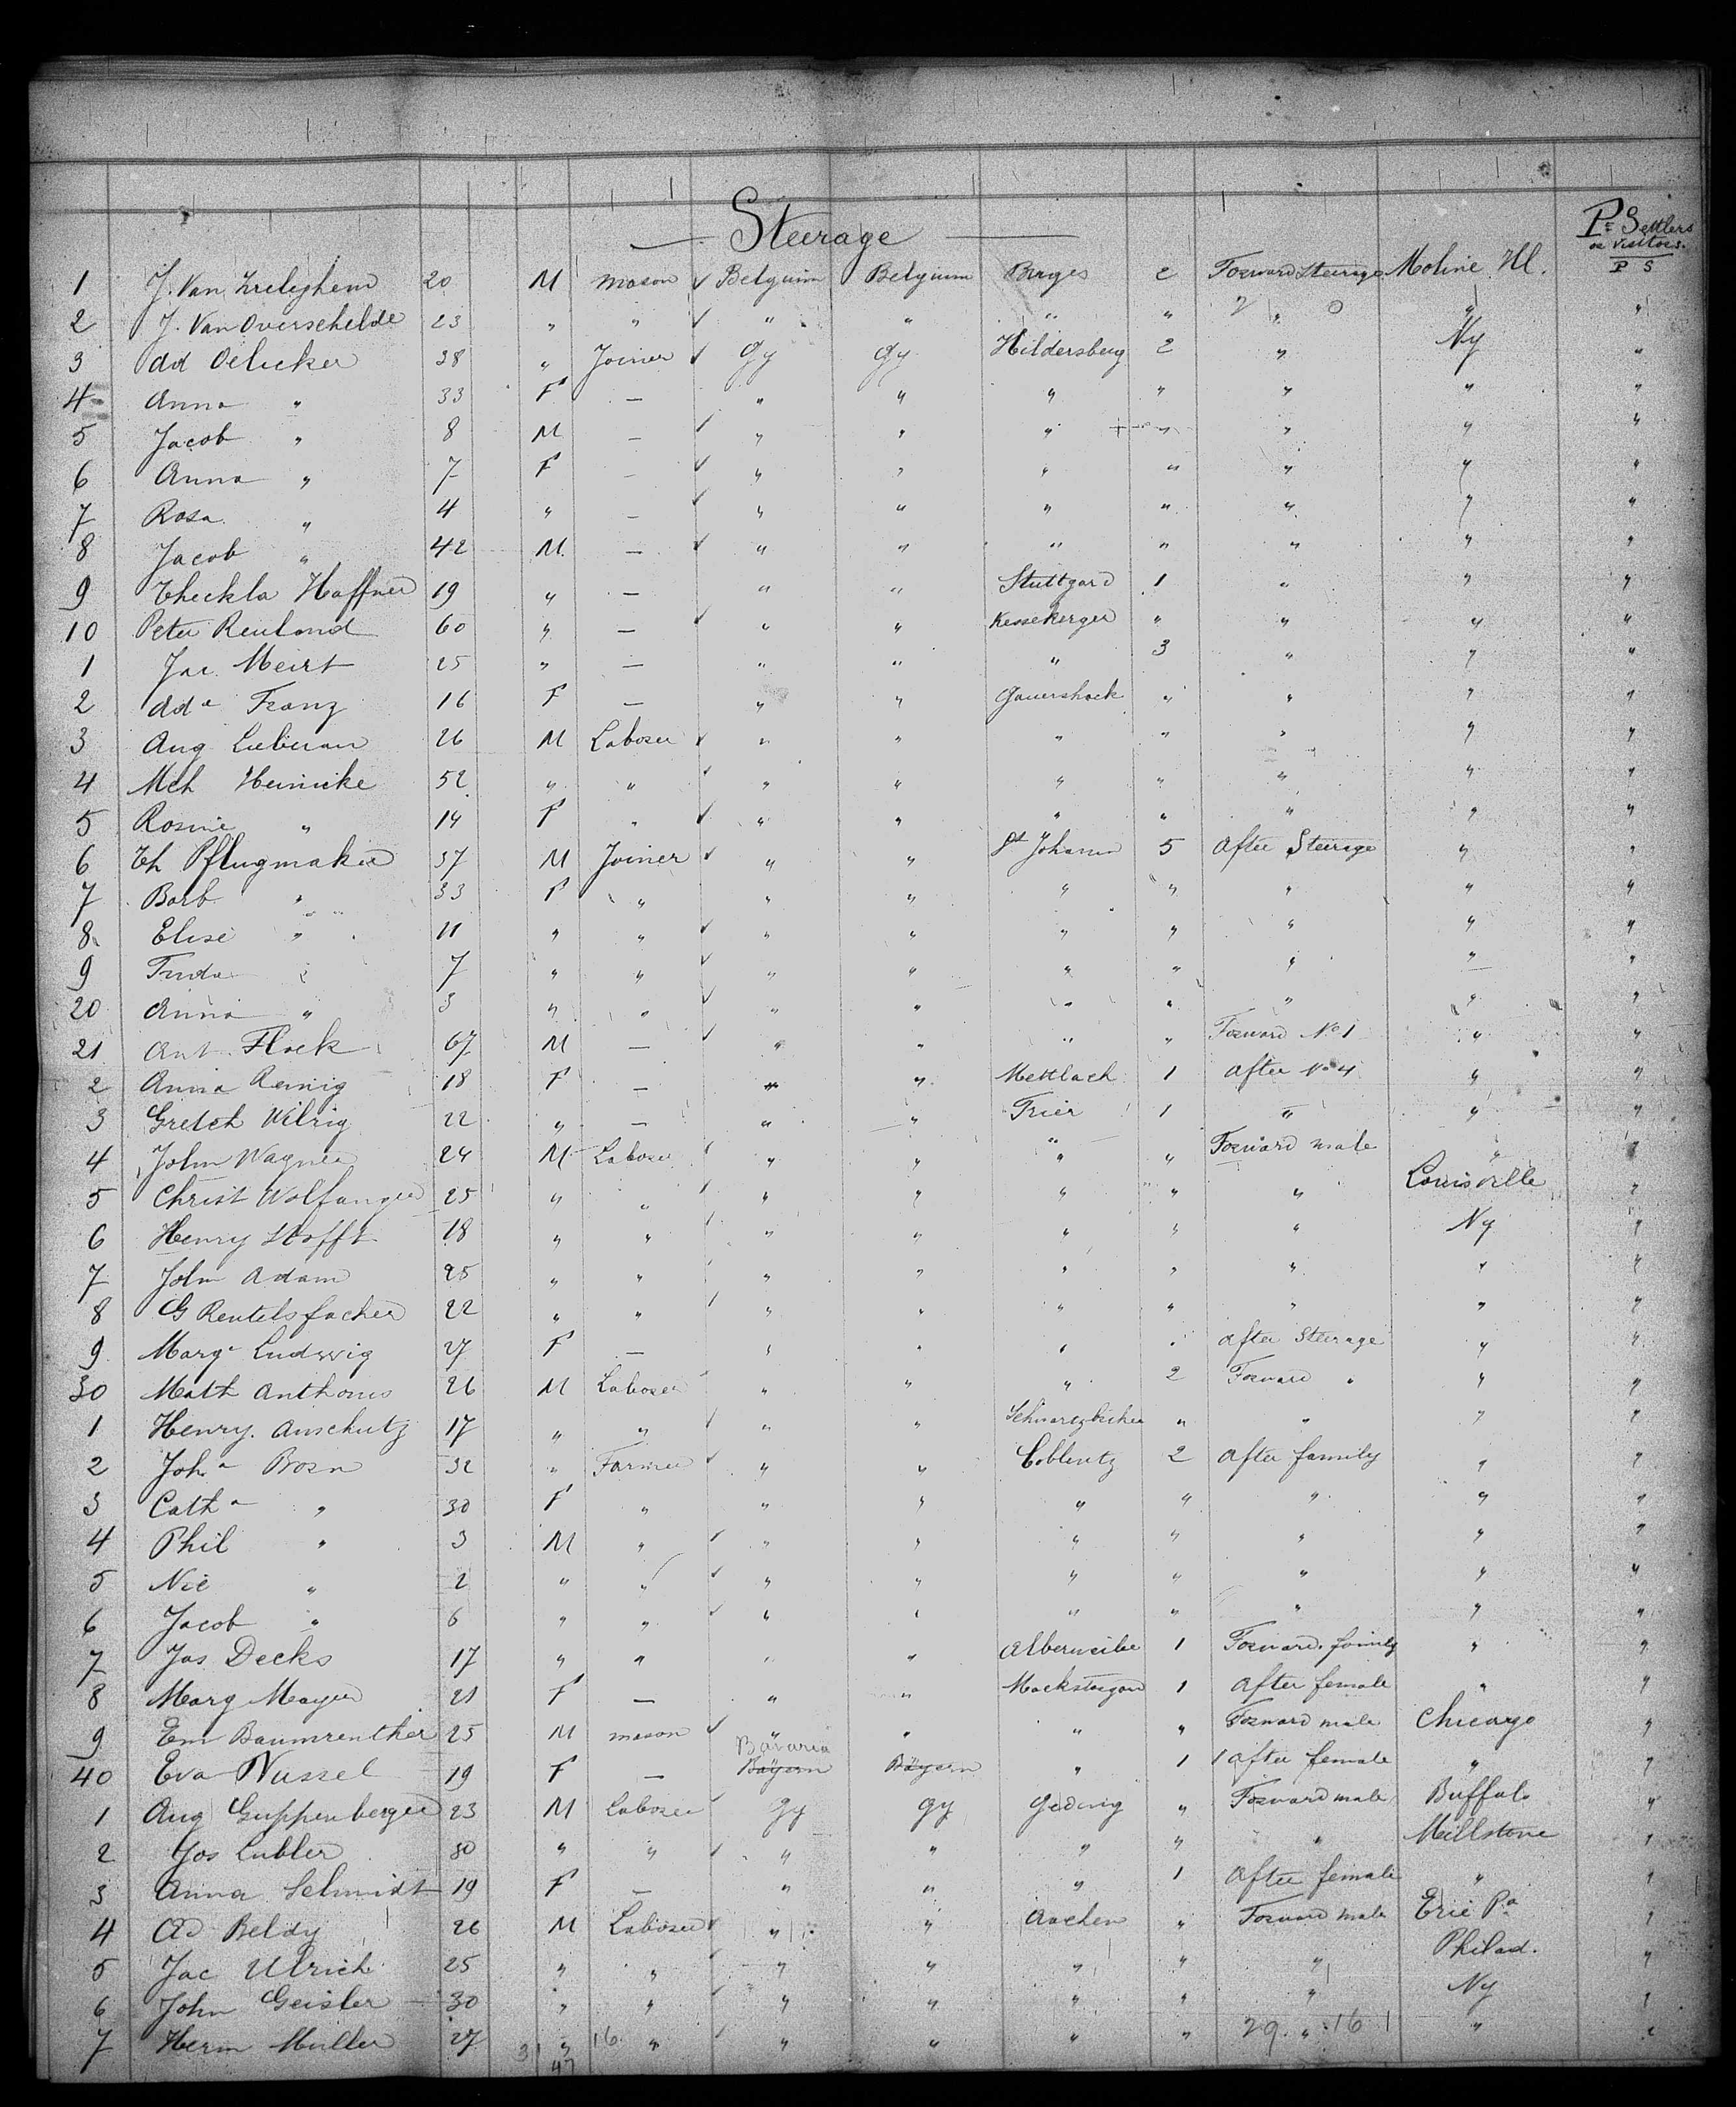 Steerage
Pr Settlers
or Visitors.
P S
1 J. Van 20 M mason ✓ Belgium Belgium Bruges 2 Forward Steerage Moline Ill.
2 J. Van Overschelde 23 " " ✓ " " " " " " "
3 Ad Oelicker 38 " Joiner ✓ Gy Gy Hildersberg 2 " Ny "
4 Anna " 33 F — " " " " " " "
5 Jacob " 8 M — ✓ " " " " " " "
6 Anna " 7 F — ✓ " " " " " " "
7 Rosa " 4 " — ✓ " " " " " " "
8 Jacob " 42 M — ✓ " " " " " " "
9 Theckla Haffner 19 " — " " Stuttgard 1 " " "
10 Peter Reuland 60 " — ✓ " " " " " "
1 Jac Meirt 25 " — " " " 3 " " "
2 Ada Franz 16 F — " " " " " "
3 Aug Lieberan 26 M Laborer ✓ " " " " " " "
4 Mch Heinicke 52 " " ✓ " " " " " " "
5 Rosine " 14 F " ✓ " " " " " " "
6 Th Pflugmaker 37 M Joiner ✓ " " St Johann 5 After Steerage " "
7 Barb " 33 F " " " " " " " "
8 Elise " 11 " " ✓ " " " " " " "
9 " 7 " " ✓ " " " " " " "
20 Anna " 3 " " ✓ " " " " " " "
21 Ant. Flock 67 M — ✓ " " " " Forward No 1 " "
2 Anna Remig 18 F — " " Mettlach 1 After No 4 " "
3 Gretch Wilrig 22 " — " " Trier 1 " " "
4 John Wagner 24 M Laborer ✓ " " " " Forward male " "
5 Christ Wolfanger 25 " " ✓ " " " " " Louisville "
6 Henry 18 " " ✓ " " " " " Ny "
7 John Adam 25 " " ✓ " " " " " " "
8 G Rentelsfacher 22 " " ✓ " " " " " " "
9 Marga Ludwig 27 F — " " " " After Steerage " "
30 Math Anthonis 26 M Laborer " " " 2 Forward " " "
1 Henry. Anschutz 17 " " ✓ " " " " " "
2 Joha Born 32 " Farmer ✓ " " Coblentz 2 After family " "
3 Catha " 30 F " " " " " " " "
4 Phil " 3 M " ✓ " " " " " " "
5 Nic " 2 " " ✓ " " " " " " "
6 Jacob " 6 " " ✓ " " " " " " "
7 Jas Decks 17 " " " " 1 Forward. family " "
8 Marg Mayer 21 F — " " 1 After female " "
9 Em Baumrenther 25 M mason ✓ " " " " Forward male Chicago "
Bavaria
40 Eva Nussel 19 F — Bayern Bayern " 1 After female " "
1 Aug Guppenberger 23 M Laborer ✓ Gy Gy " Forward male Buffalo "
2 Jos Lubler 30 " " ✓ " " " " " Millstone "
3 Anna Schmidt 19 F — " " " 1 After female " "
4 Ad Beldy 26 M Laborer ✓ " " Aachen " Forward male Erie Pa "
5 Jac Ulrich 25 " " ✓ " " " " " Philad. "
6 John Geisler 30 " " ✓ " " " " " Ny "
7 Herm Muller 27 " " ✓ " " " " " " "
31 47 16 29 16